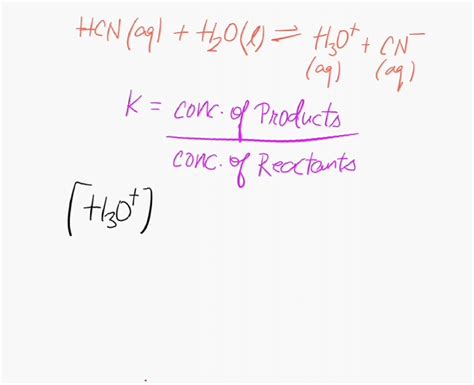 HCN(aq) + H₂O(l) ⇌ H₃O⁺ + CN⁻
(aq) (aq)
K = conc. of Products
conc. of Reactants
[H₃O⁺]